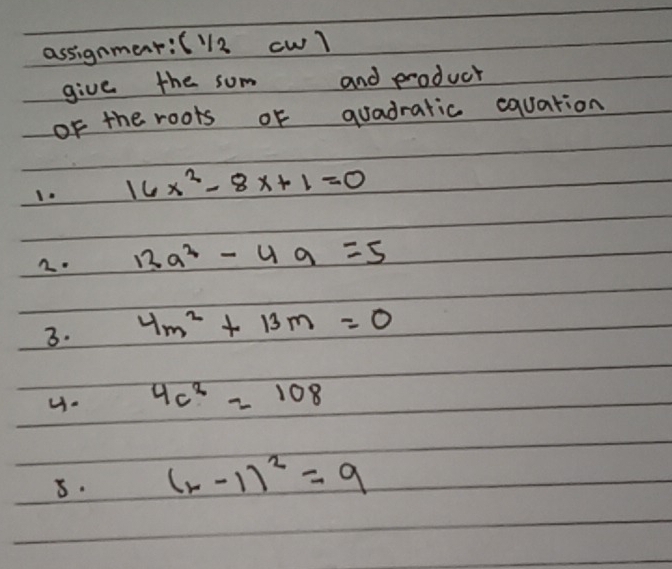 assignment: ( 1/2 cw )
give the sum and product
of the roots of quadratic equation
1. 16x² - 8x + 1 = 0
2. 12a² - 4a = 5
3. 4m² + 13m = 0
4. 4c² = 108
5. (r - 1)² = 9